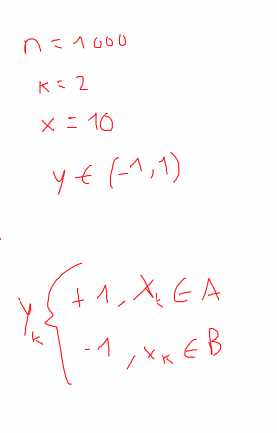 n = 1000
k = 2
x = 10
y ∈ (-1, 1)
y_k { +1, x_k ∈ A
-1, x_k ∈ B